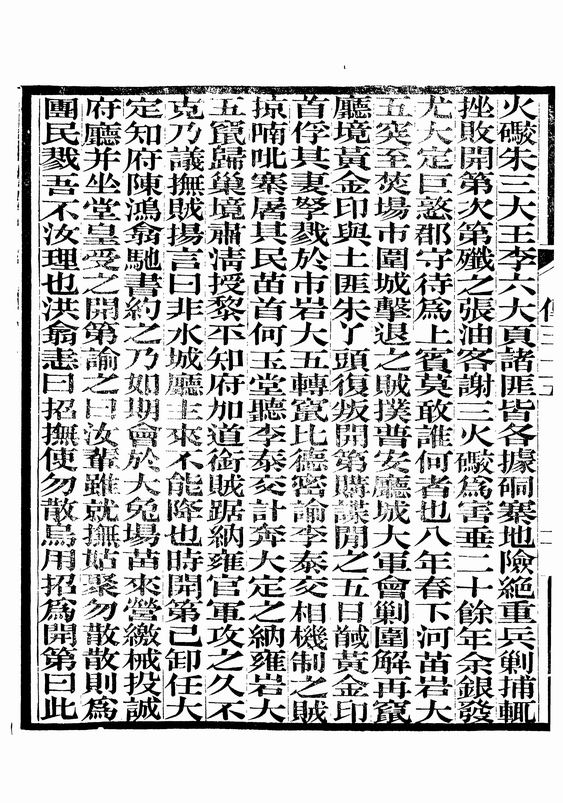 火礮朱三大王李六大頁諸匪皆各據硐寨地險絕重兵剿捕輒
挫敗開第次第殲之張油客謝三火礮為害垂二十餘年余銀發
尤大定巨憝郡守待為上賓莫敢誰何者也八年春下河苗岩大
五突至焚場市圍城擊退之賊撲普安廳城大軍會剿圍解再竄
廳境黃金印與土匪朱丫頭復叛開第購諜閒之五日馘黃金印
首俘其妻孥戮於市岩大五轉竄比德密諭李泰交相機制之賊
掠喃吡寨屠其民苗首何玉堂聽李泰交計奔大定之納雍岩大
五竄歸巢境肅清授黎平知府加道銜賊踞納雍官軍攻之久不
克乃議撫賊揚言曰非水城廳主來不能降也時開第已卸任大
定知府陳鴻翕馳書約之乃如期會於大兔場苗來營繳械投誠
府廳并坐堂皇受之開第諭之曰汝輩雖就撫姑聚勿散散則為
團民戮吾不汝理也洪翕恚曰招撫使勿散焉用招為開第曰此